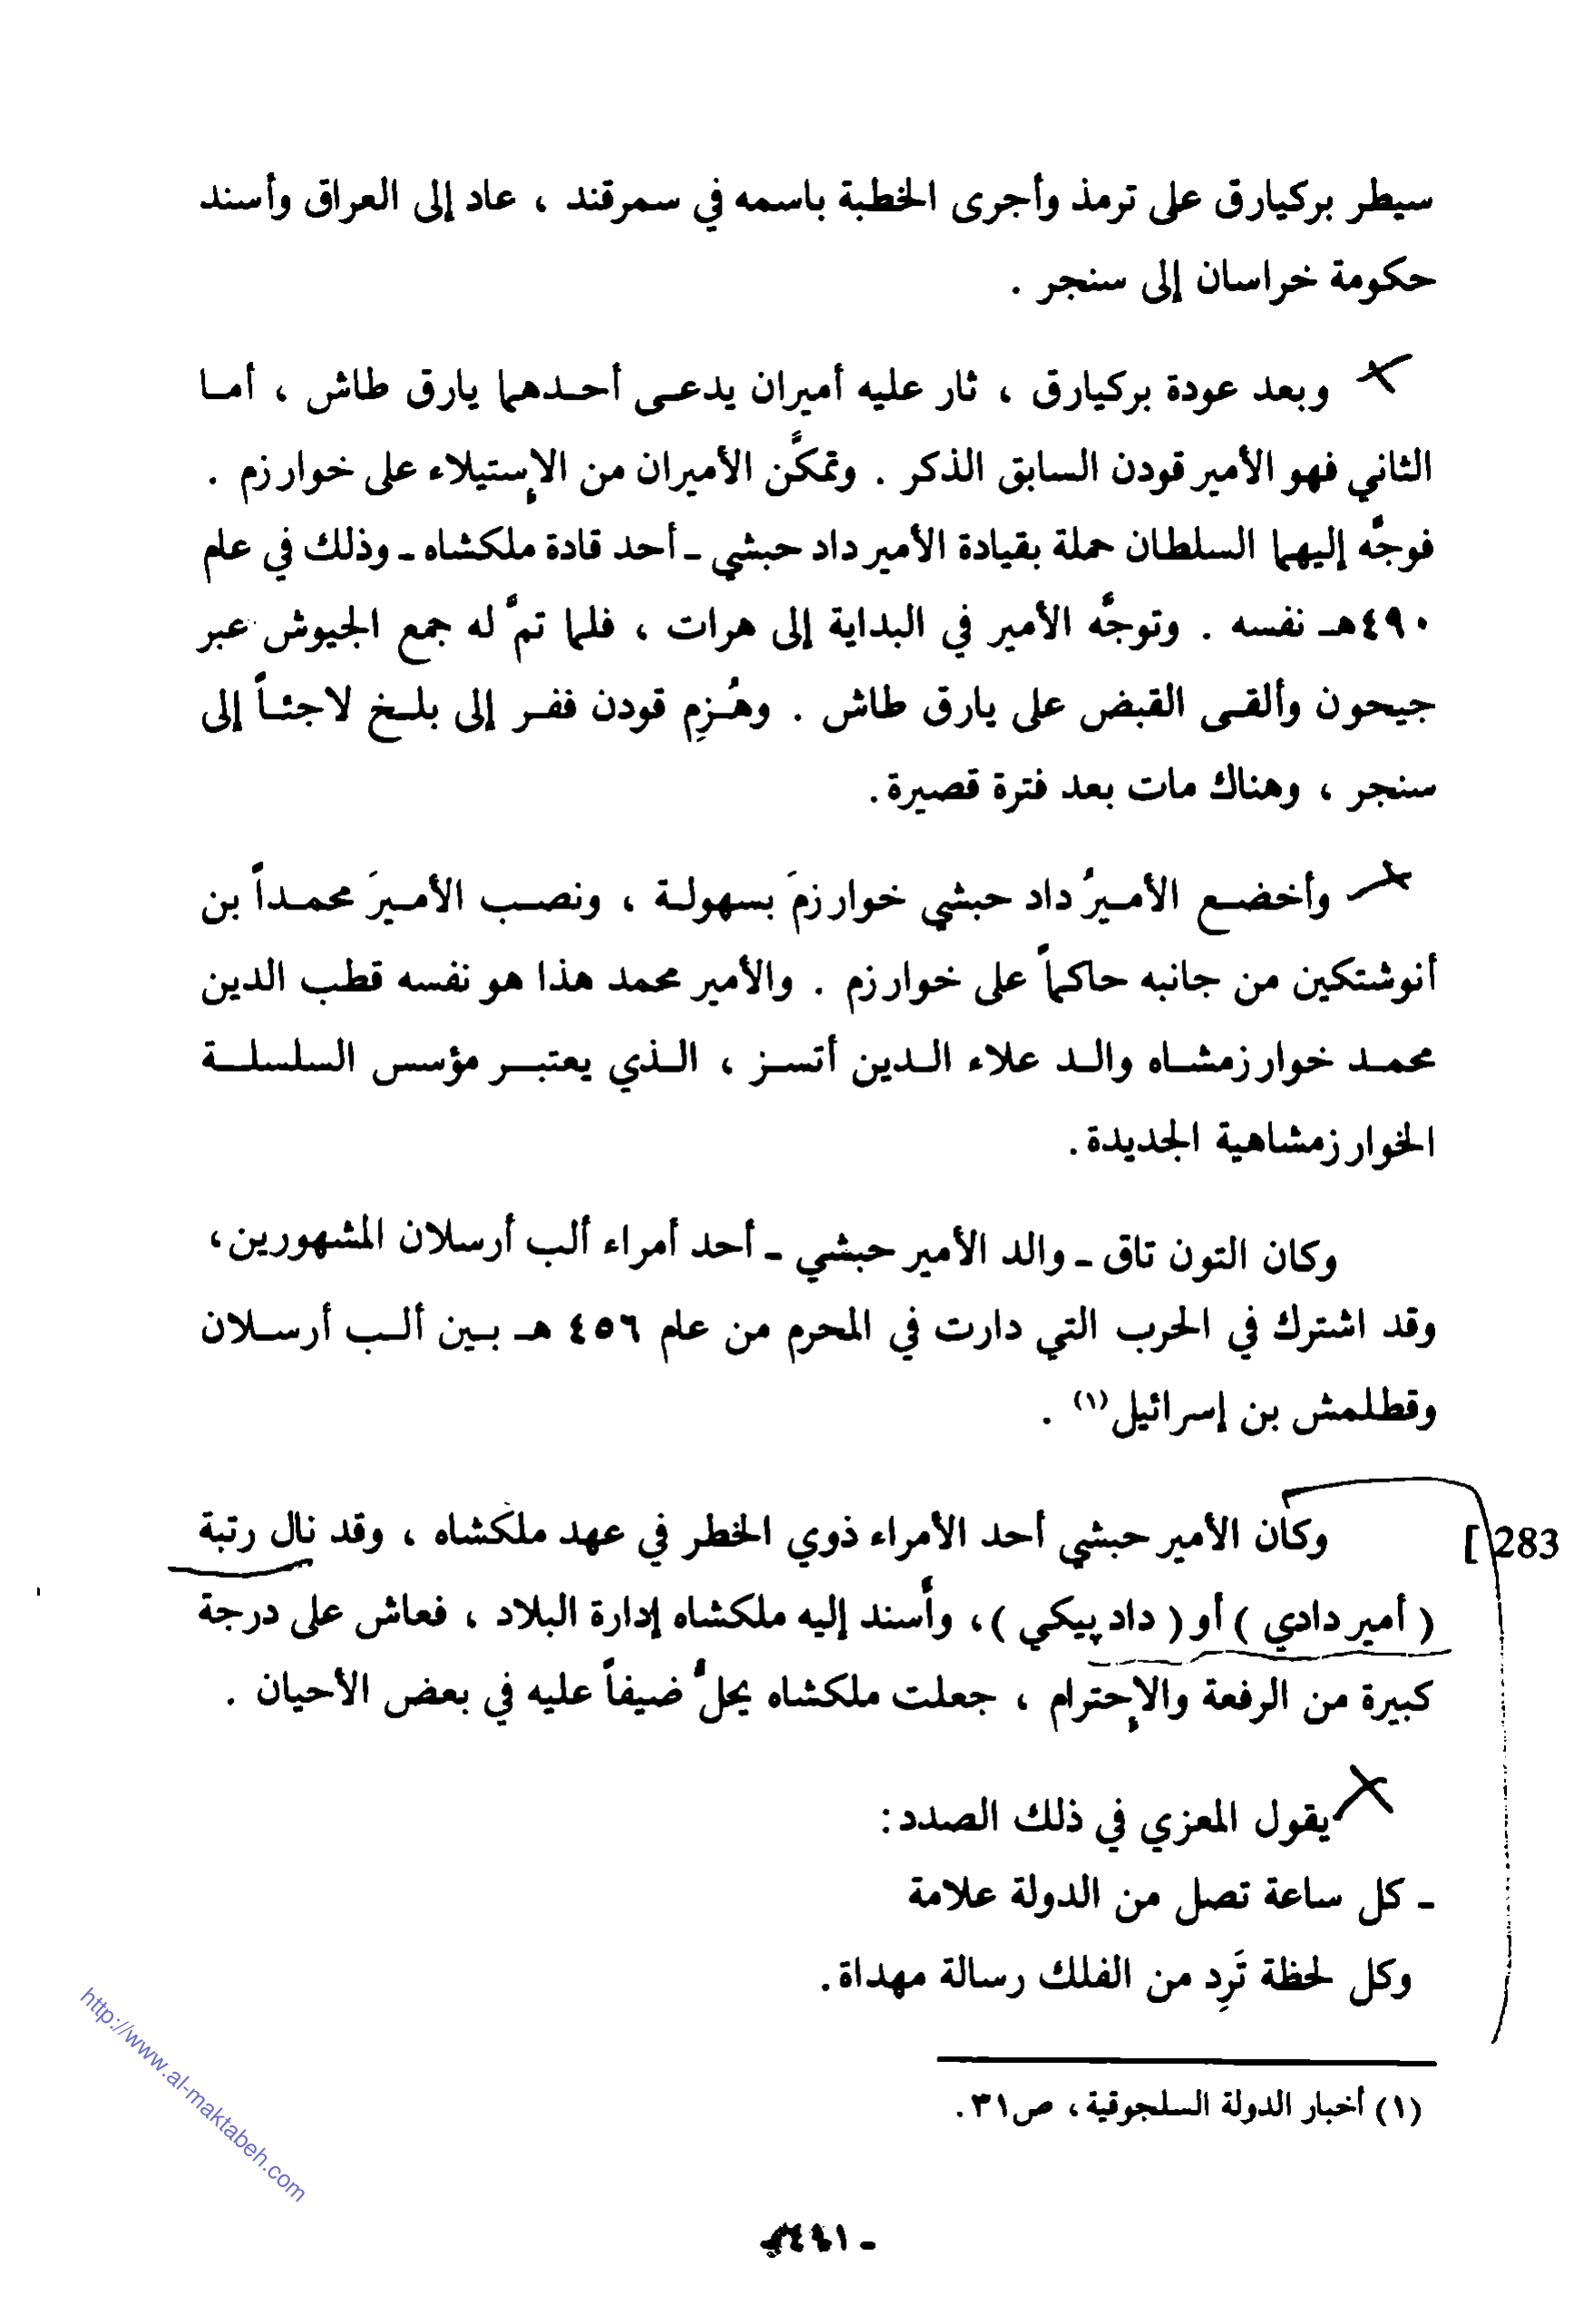 سيطر بركيارق على ترمذ وأجرى الخطبة باسمه في سمرقند ، عاد إلى العراق وأسند
حكومة خراسان إلى سنجر .
وبعد عودة بركيارق ، ثار عليه أميران يدعى أحدهما يارق طاش ، أما
الثاني فهو الأمير قودن السابق الذكر . وتمكَّن الأميران من الإستيلاء على خوارزم .
فوجَّه إليهما السلطان حملة بقيادة الأمير داد حبشي ـ أحد قادة ملكشاه ـ وذلك في عام
٤٩٠هـ نفسه . وتوجَّه الأمير في البداية إلى هرات ، فلما تمَّ له جمع الجيوش عبر
جيحون وألقى القبض على يارق طاش . وهُزِم قودن ففر إلى بلخ لاجئاً إلى
سنجر ، وهناك مات بعد فترة قصيرة .
وأخضع الأميرُ داد حبشي خوارزمَ بسهولة ، ونصب الأميرَ محمداً بن
أنوشتكين من جانبه حاكماً على خوارزم . والأمير محمد هذا هو نفسه قطب الدين
محمد خوارزمشاه والد علاء الدين أتسز ، الذي يعتبر مؤسس السلسلة
الخوارزمشاهية الجديدة .
وكان التون تاق ـ والد الأمير حبشي ـ أحد أمراء ألب أرسلان المشهورين ،
وقد اشترك في الحرب التي دارت في المحرم من عام ٤٥٦ هـ بين ألب أرسلان
وقطلمش بن إسرائيل (١) .
283 ] وكان الأمير حبشي أحد الأمراء ذوي الخطر في عهد ملكشاه ، وقد نال رتبة
( أمير دادي ) أو ( داد پيكي ) ، وأسند إليه ملكشاه إدارة البلاد ، فعاش على درجة
كبيرة من الرفعة والإحترام ، جعلت ملكشاه يحلُّ ضيفاً عليه في بعض الأحيان .
يقول المعزي في ذلك الصدد :
ـ كل ساعة تصل من الدولة علامة
وكل لحظة تَرِد من الفلك رسالة مهداة .
(١) أخبار الدولة السلجوقية ، ص٣١ .
http://www.al-maktabeh.com